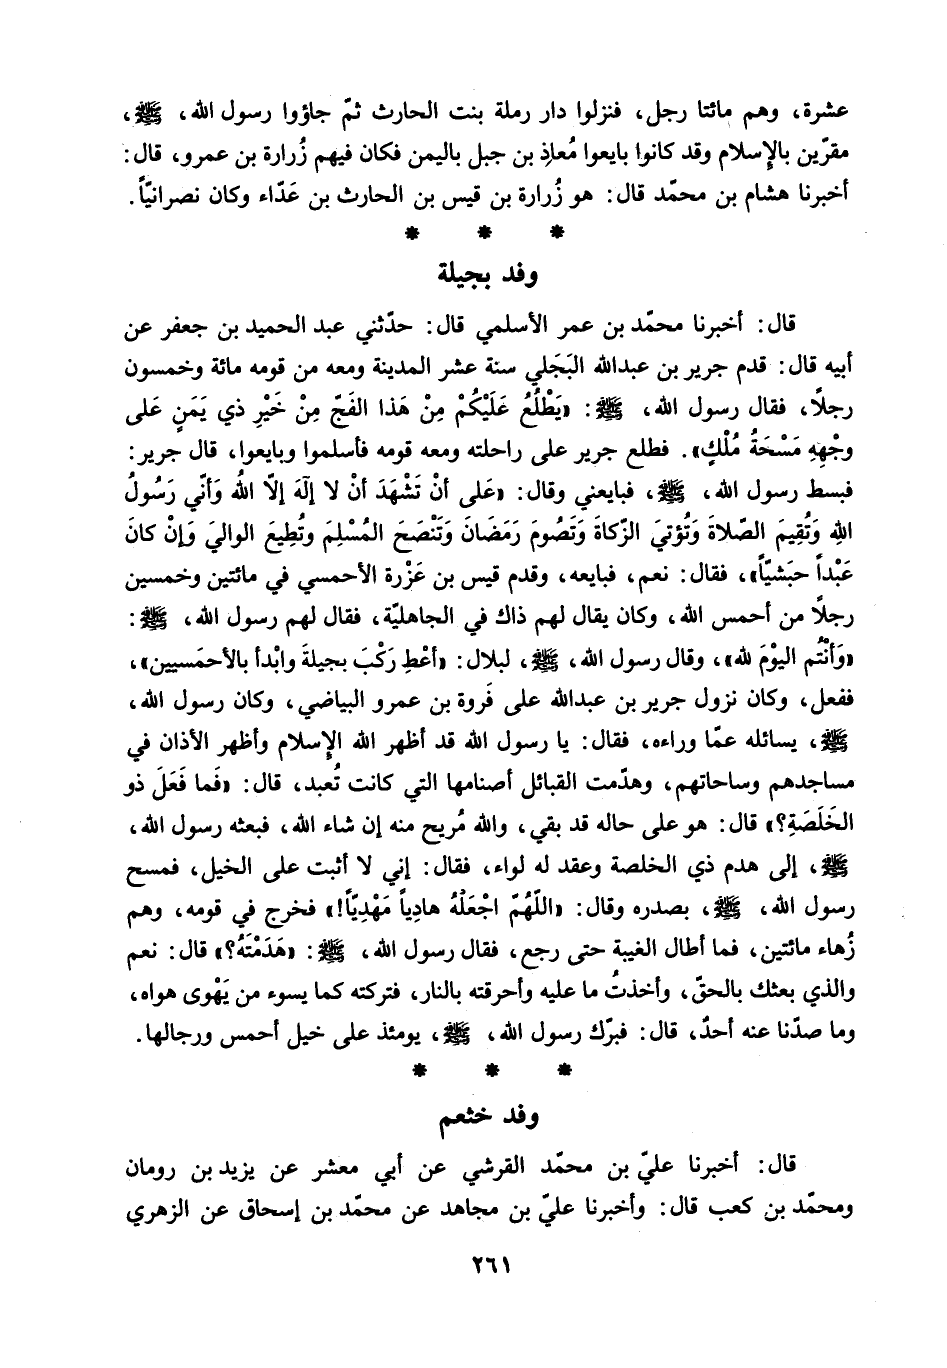 عشرة، وهم مائتا رجل، فنزلوا دار رملة بنت الحارث ثمّ جاؤوا رسول الله، ﷺ،
مقرّين بالإسلام وقد كانوا بايعوا مُعاذ بن جبل باليمن فكان فيهم زُرارة بن عمرو، قال:
أخبرنا هشام بن محمّد قال: هو زُرارة بن قيس بن الحارث بن عَدّاء وكان نصرانيّاً.
* * *
وفد بجيلة
قال: أخبرنا محمّد بن عمر الأسلمي قال: حدّثني عبد الحميد بن جعفر عن
أبيه قال: قدم جرير بن عبدالله البَجَلي سنة عشر المدينة ومعه من قومه مائة وخمسون
رجلاً، فقال رسول الله، ﷺ: «يَطْلُعُ عَلَيْكُمْ مِنْ هَذا الفَجّ مِنْ خَيْرِ ذي يَمَنٍ عَلى
وجْهِهِ مَسْحَةُ مُلْكٍ». فطلع جرير على راحلته ومعه قومه فأسلموا وبايعوا، قال جرير:
فبسط رسول الله، ﷺ، فبايعني وقال: «عَلى أنْ تَشْهَدَ أنْ لا إلَهَ إلّا اللهُ وَأنّي رَسُولُ
اللهِ وَتُقِيمَ الصّلاةَ وَتُؤتيَ الزّكاةَ وَتَصُومَ رَمَضَانَ وَتَنْصَحَ المُسْلِمَ وتُطِيعَ الواليَ وَإنْ كانَ
عَبْداً حبَشيّاً»، فقال: نعم، فبايعه، وقدم قيس بن عَزْرة الأحمسي في مائتين وخمسين
رجلاً من أحمس الله، وكان يقال لهم ذاك في الجاهليّة، فقال لهم رسول الله، ﷺ:
«وَأنْتُم اليوْمَ لله»، وقال رسول الله، ﷺ، لبلال: «أعْطِ رَكْبَ بجيلةَ وابْدأ بالأحمَسيين»،
ففعل، وكان نزول جرير بن عبدالله على فَروة بن عمرو البياضي، وكان رسول الله،
ﷺ، يسائله عمّا وراءه، فقال: يا رسول الله قد أظهر الله الإسلام وأظهر الأذان في
مساجدهم وساحاتهم، وهدّمت القبائل أصنامها التي كانت تُعبد، قال: «فَما فَعَلَ ذو
الخَلَصَةِ؟» قال: هو على حاله قد بقي، والله مُريح منه إن شاء الله، فبعثه رسول الله،
ﷺ، إلى هدم ذي الخلصة وعقد له لواء، فقال: إني لا أثبت على الخيل، فمسح
رسول الله، ﷺ، بصدره وقال: «اللّهُمّ اجْعَلْهُ هادِياً مَهْدِيّاً!» فخرج في قومه، وهم
زُهاء مائتين، فما أطال الغيبة حتى رجع، فقال رسول الله، ﷺ: «هَدَمْتَهُ؟» قال: نعم
والذي بعثك بالحقّ، وأخذتُ ما عليه وأحرقته بالنار، فتركته كما يسوء من يَهْوى هواه،
وما صدّنا عنه أحدٌ، قال: فبرّك رسول الله، ﷺ، يومئذ على خيل أحمس ورجالها.
* * *
وفد خثعم
قال: أخبرنا عليّ بن محمّد القرشي عن أبي معشر عن يزيد بن رومان
ومحمّد بن كعب قال: وأخبرنا عليّ بن مجاهد عن محمّد بن إسحاق عن الزهري
٢٦١